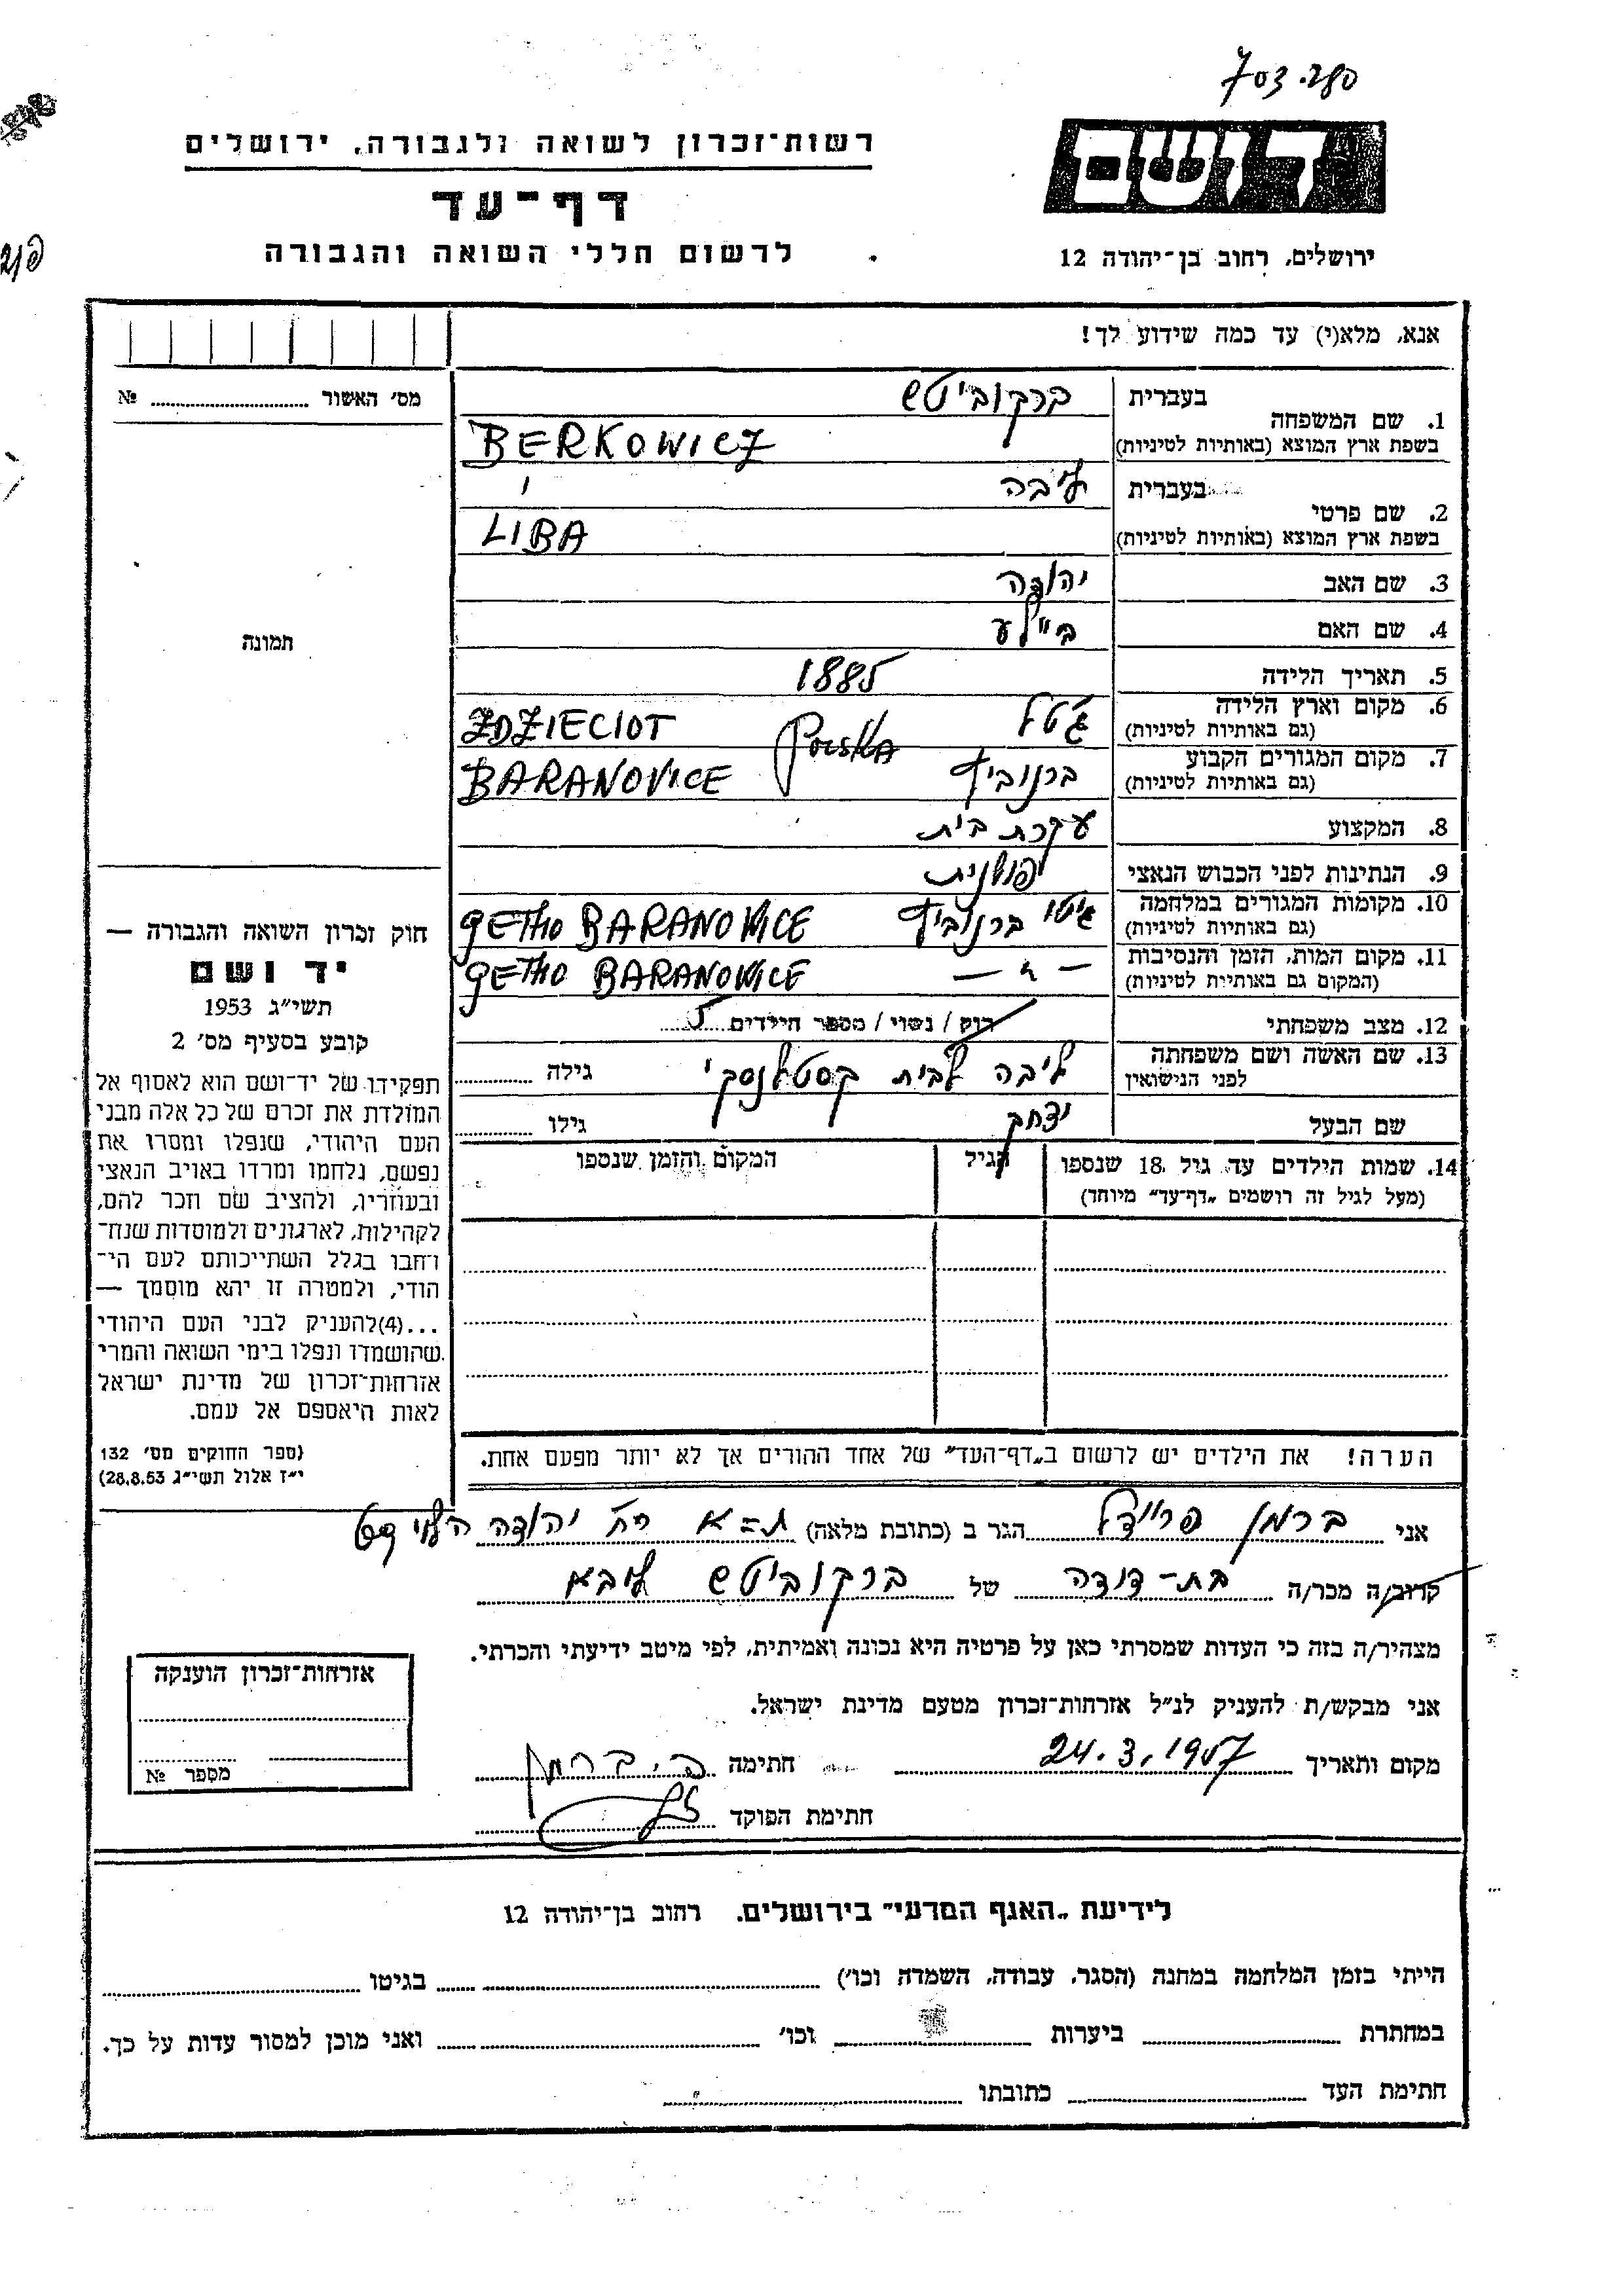 703.280
רשות־זכרון לשואה ולגבורה, ירושלים
דף־עד
לרשום חללי השואה והגבורה
יד ושם
ירושלים, רחוב בן־יהודה 12
אנא, מלא(י) עד כמה שידוע לך!
מס׳ האשור № 
1. שם המשפחה בעברית ברקוביטש
בשפת ארץ המוצא (באותיות לטיניות) BERKOWICZ
2. שם פרטי בעברית ליבה
בשפת ארץ המוצא (באותיות לטיניות) LIBA
3. שם האב יהודה
4. שם האם ביילע
5. תאריך הלידה 1885
6. מקום וארץ הלידה (גם באותיות לטיניות) ז׳טל Polska ZDZIECIOT
7. מקום המגורים הקבוע (גם באותיות לטיניות) ברנוביץ BARANOVICE
8. המקצוע עקרת בית
9. הנתינות לפני הכבוש הנאצי פולנית
10. מקומות המגורים במלחמה (גם באותיות לטיניות) גיטו ברנוביץ GETHO BARANOVICE
11. מקום המות, הזמן והנסיבות (המקום גם באותיות לטיניות) — " — GETHO BARANOWICE
12. מצב משפחתי רוק / נשוי / מספר הילדים 5
13. שם האשה ושם משפחתה לפני הנישואין ליבה לבית קסטלנסקי גילה
שם הבעל יצחק גילו
14. שמות הילדים עד גיל 18 שנספו (מעל לגיל זה רושמים „דף־עד״ מיוחד) הגיל המקום והזמן שנספו
הערה! את הילדים יש לרשום ב„דף־העד״ של אחד ההורים אך לא יותר מפעם אחת.
תמונה
חוק זכרון השואה והגבורה —
יד ושם
תשי״ג 1953
קובע בסעיף מס׳ 2
תפקידו של יד־ושם הוא לאסוף אל
המולדת את זכרם של כל אלה מבני
העם היהודי, שנפלו ומסרו את
נפשם, נלחמו ומרדו באויב הנאצי
ובעוזריו, ולהציב שם וזכר להם,
לקהילות, לארגונים ולמוסדות שנח־
רחבו בגלל השתייכותם לעם הי־
הודי, ולמטרה זו יהא מוסמך —
...(4)להעניק לבני העם היהודי
שהושמדו ונפלו בימי השואה והמרי
אזרחות־זכרון של מדינת ישראל
לאות היאספם אל עמם.
(ספר החוקים מס׳ 132
י״ז אלול תשי״ג 28.8.53)
אני ברמן פריידל הגר ב (כתובת מלאה) ת=א רח׳ יהודה הלוי
קרוב/ה מכר/ה בת-דודה של ברקוביטש ליבא
מצהיר/ה בזה כי העדות שמסרתי כאן על פרטיה היא נכונה ואמיתית, לפי מיטב ידיעתי והכרתי.
אני מבקש/ת להעניק לנ״ל אזרחות־זכרון מטעם מדינת ישראל.
מקום ותאריך 24.3.1957 חתימה פ. ברמן
חתימת הפוקד
אזרחות־זכרון הוענקה
מספר №
לידיעת „האגף המדעי״ בירושלים. רחוב בן־יהודה 12
הייתי בזמן המלחמה במחנה (הסגר, עבודה, השמדה וכו׳) בגיטו
במחתרת ביערות וכו׳ ואני מוכן למסור עדות על כך.
חתימת העד כתובתו